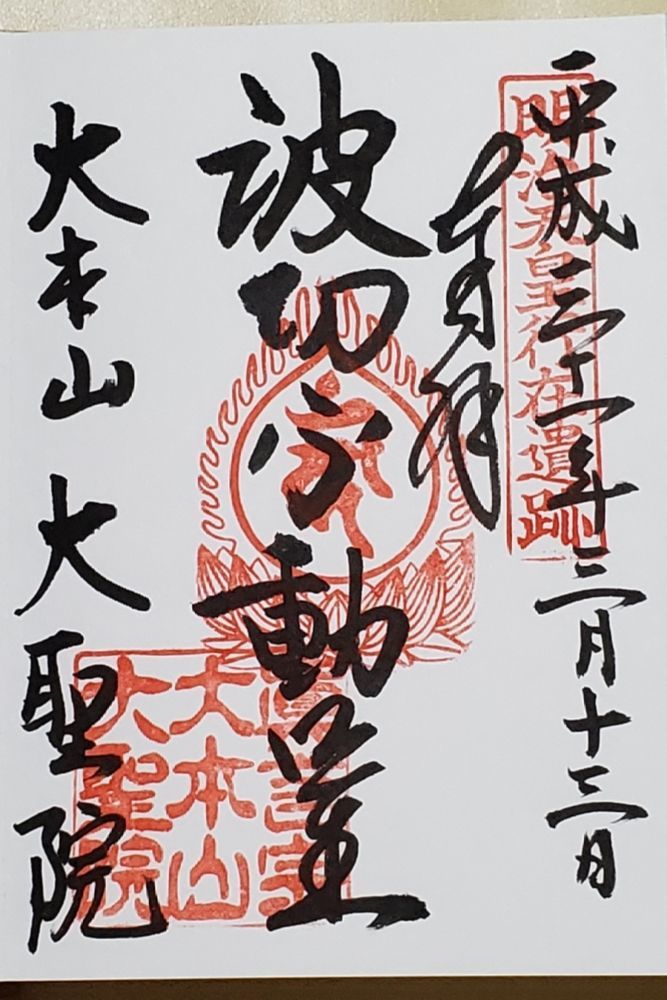 平成三十一年三月十三日
明治天皇行在遺跡
奉拝
波切不動堂
大本山 大聖院
真言宗
大本山
大聖院